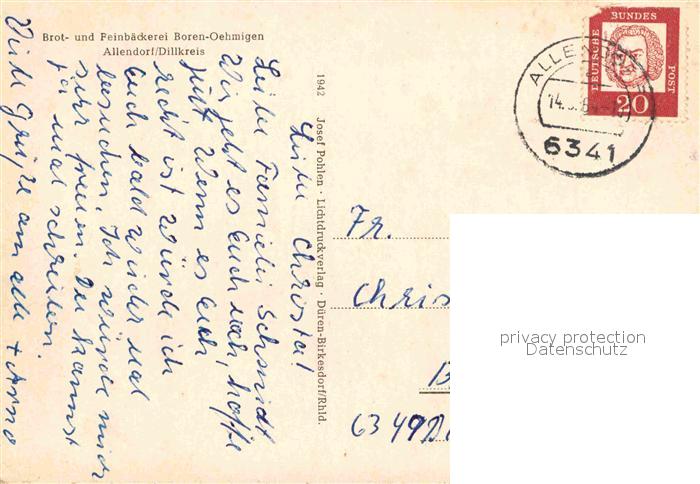 Brot- und Feinbäckerei Boren-Oehmigen
Allendorf/Dillkreis
Liebe Christa!
Liebe Familie Schmidt
Wie geht es Euch noch, hoffe
gut. Wenn es Euch
recht ist würde ich
Euch bald wieder mal
besuchen. Ich würde mich
sehr freuen. Du kannst
ja mal schreiben.
Viele Grüße an alle + Arno
1942 Josef Pohlen · Lichtdruckverlag · Düren-Birkesdorf/Rhld.
DEUTSCHE
BUNDES
POST
20
ALLENDORF
6341
Fr.
Chris
B
6349
privacy protection
Datenschutz